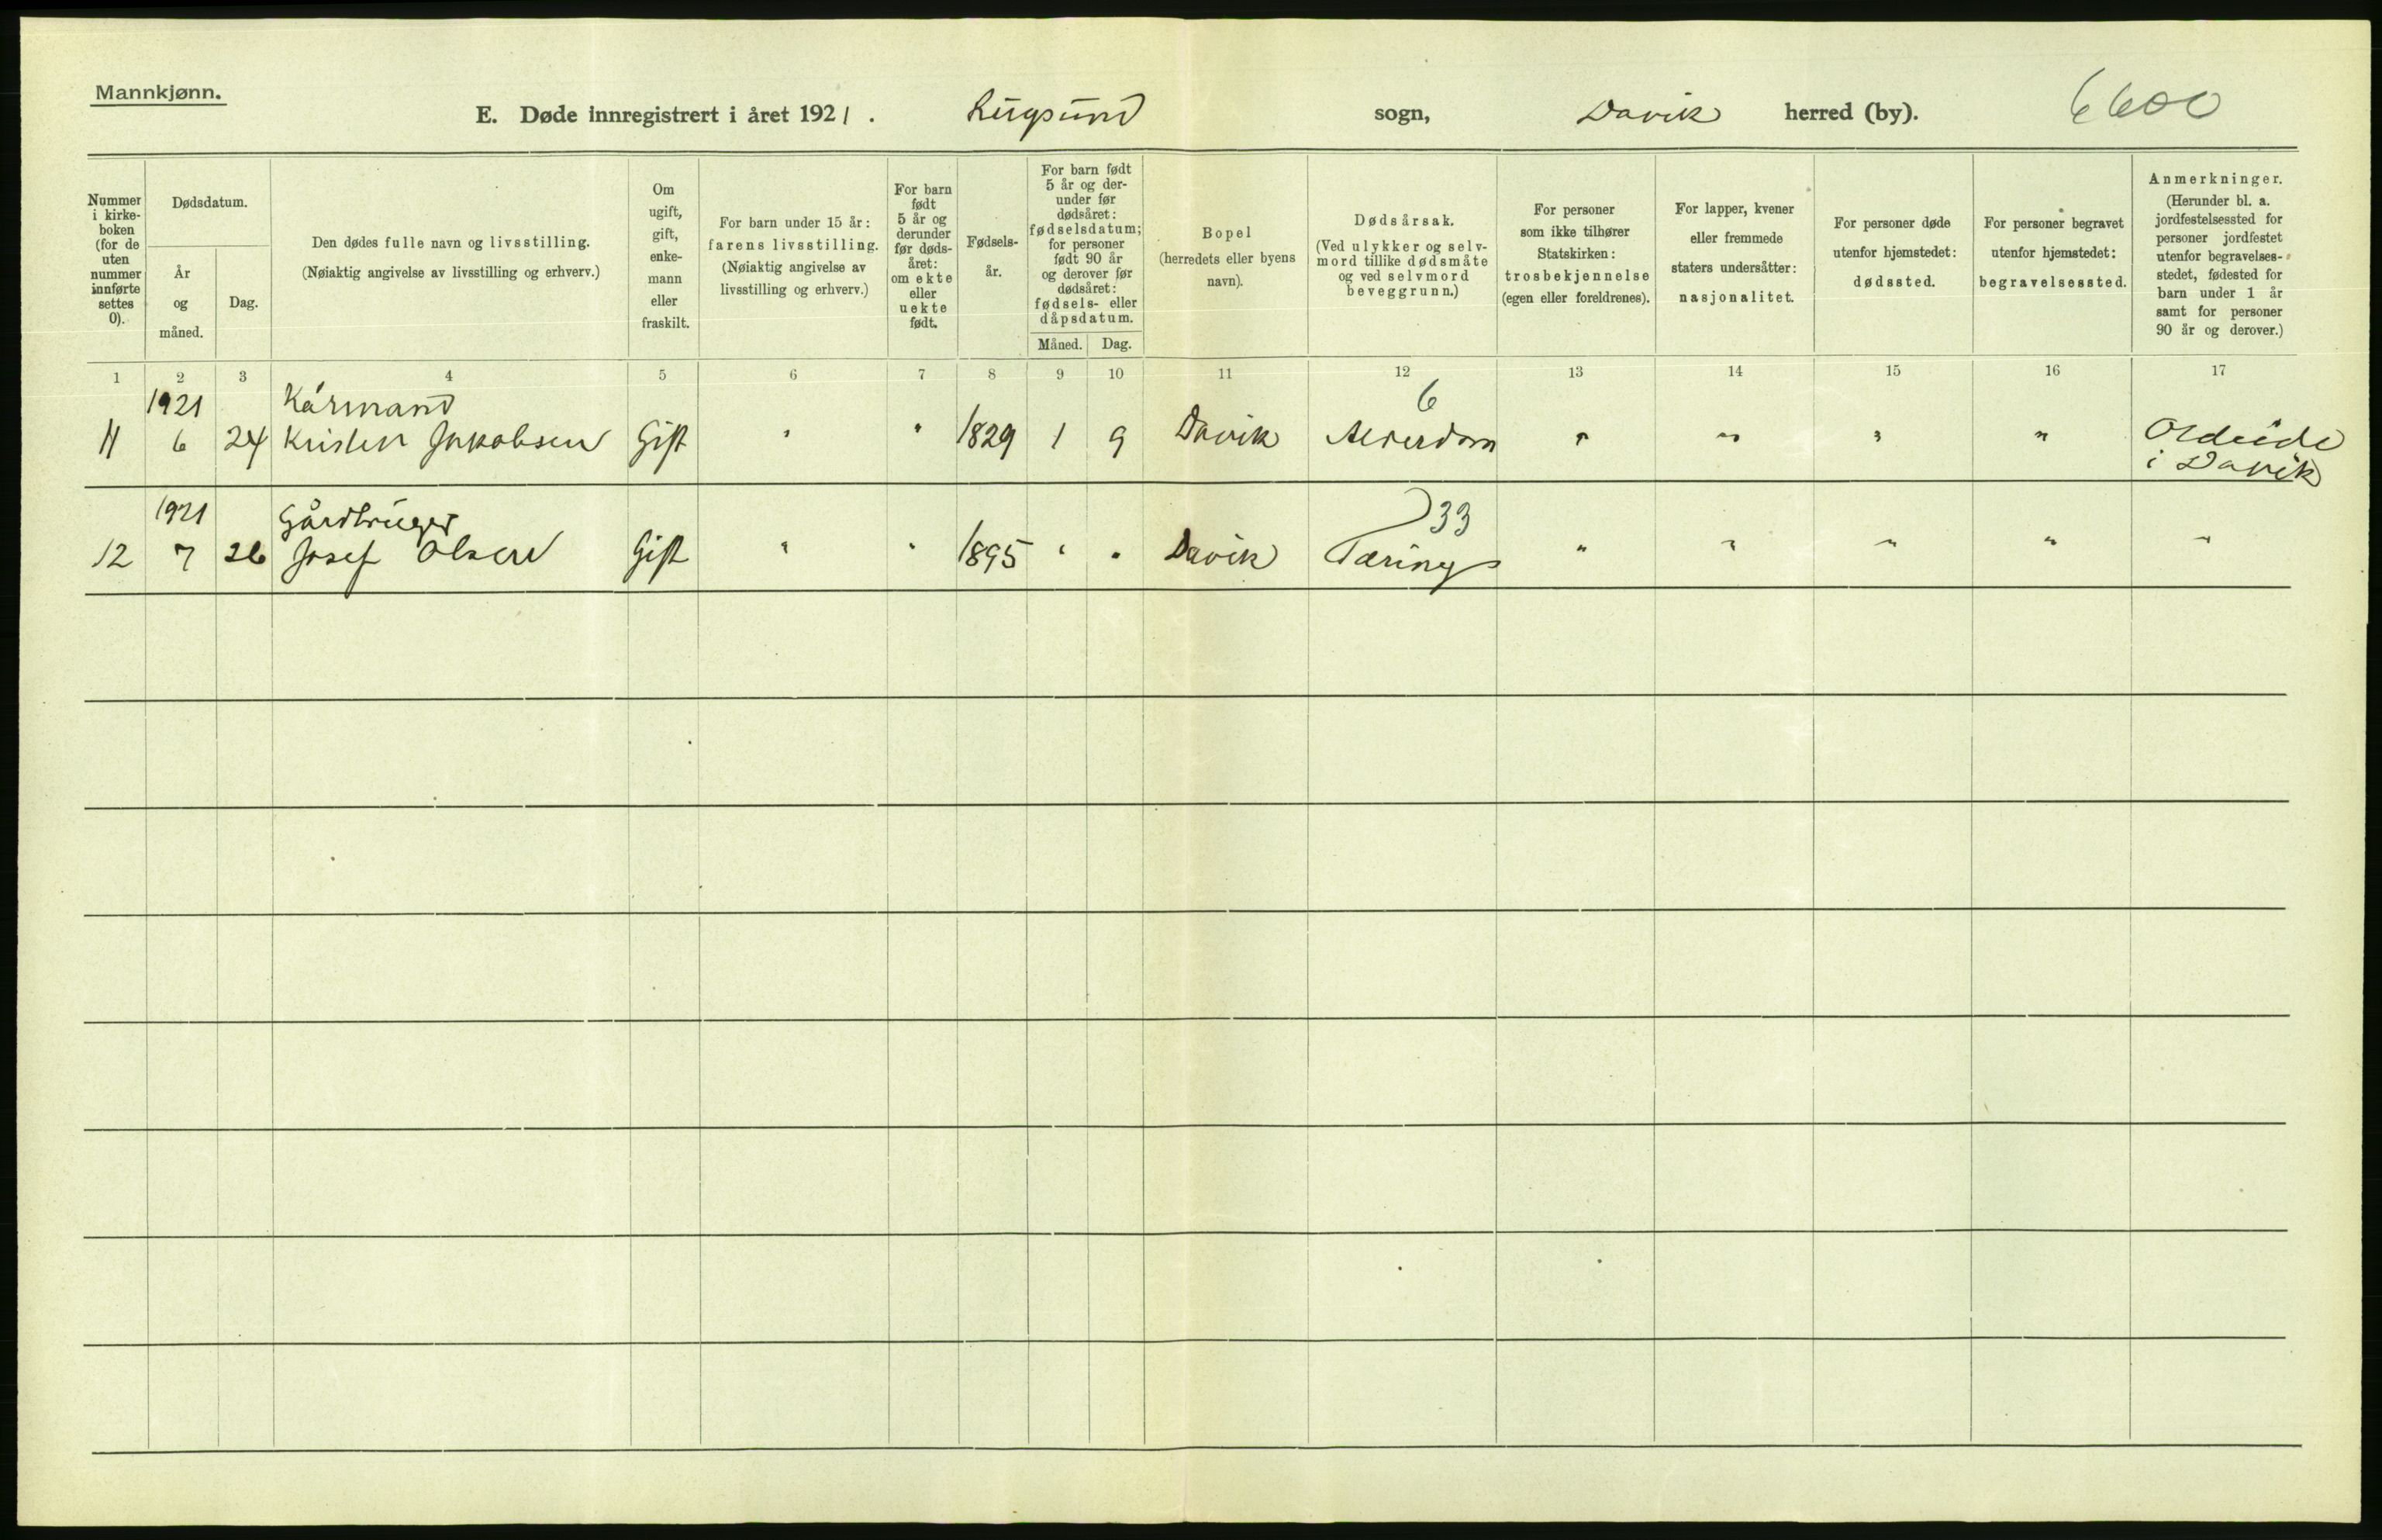 Mannkjønn.
E. Døde innregistrert i året 1921. Rugsund sogn, Davik herred (by). 6600
Nummer i kirke-boken (for de uten nummer innførte settes 0).
Dødsdatum.
År og måned.
Dag.
Den dødes fulle navn og livsstilling.
(Nøiaktig angivelse av livsstilling og erhverv.)
Om ugift, gift, enke-mann eller fraskilt.
For barn under 15 år:
farens livsstilling.
(Nøiaktig angivelse av
livsstilling og erhverv.)
For barn født 5 år og derunder før døds-året: om ekte eller uekte født.
Fødsels-år.
For barn født 5 år og der-under før dødsåret: fødselsdatum; for personer født 90 år og derover før dødsåret: fødsels- eller dåpsdatum.
Måned. Dag.
Bopel
(herredets eller byens
navn).
Dødsårsak.
(Ved ulykker og selv-
mord tillike dødsmåte
og ved selvmord
beveggrunn.)
For personer
som ikke tilhører
Statskirken:
trosbekjennelse
(egen eller foreldrenes).
For lapper, kvener
eller fremmede
staters undersåtter:
nasjonalitet.
For personer døde
utenfor hjemstedet:
dødssted.
For personer begravet
utenfor hjemstedet:
begravelsessted.
Anmerkninger.
(Herunder bl. a.
jordfestelsessted for
personer jordfestet
utenfor begravelses-
stedet, fødested for
barn under 1 år
samt for personer
90 år og derover.)
1 2 3 4 5 6 7 8 9 10 11 12 13 14 15 16 17
1921 Kårmand 6
11 6 24 Kristen Jakobsen Gift " " 1829 1 9 Davik Alderdom " " " " Oldeide
i Davik
1921 Gårdbruger 33
12 7 26 Josef Olsen Gift " " 1895 " " Davik Tæring " " " " "